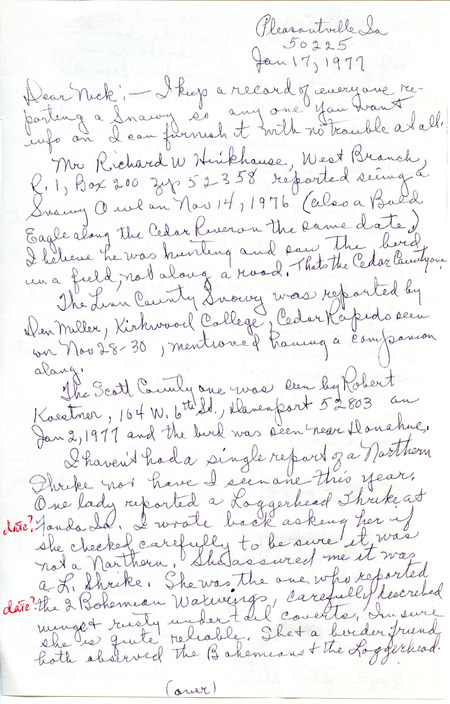 Pleasantville Ia
50225
Jan 17, 1977
Dear Nick: — I keep a record of everyone re-
porting a Snowy so any one you want
info on I can furnish it with no trouble at all.
Mr Richard W Hinkhouse, West Branch,
R. 1, Box 200 zip 52358 reported seeing a
Snowy Owl on Nov 14, 1976 (also a Bald
Eagle along the Cedar River on the same date).
I believe he was hunting and saw the bird
in a field, not along a road. Thats the Cedar County one
The Linn County Snowy was reported by
Den Miller, Kirkwood College, Cedar Rapids seen
on Nov 28-30, mentioned having a companion
along.
The Scott County one was seen by Robert
Koestner, 104 W. 6th St., Davenport 52803 on
Jan 2, 1977 and the bird was seen near Donahue.
I haven't had a single report of a Northern
Shrike nor have I seen one this year.
One lady reported a Loggerhead Shrike at
date? Ia. I wrote back asking her if
she checked carefully to be sure it was
not a Northern. She assured me it was
a L. Shrike. She was the one who reported
date? the 2 Bohemian Waxwings, carefully described
wings & rusty under tail coverts. Im sure
she is quite reliable. She & a birder friend
both observed the Bohemians & the Loggerhead.
(over)